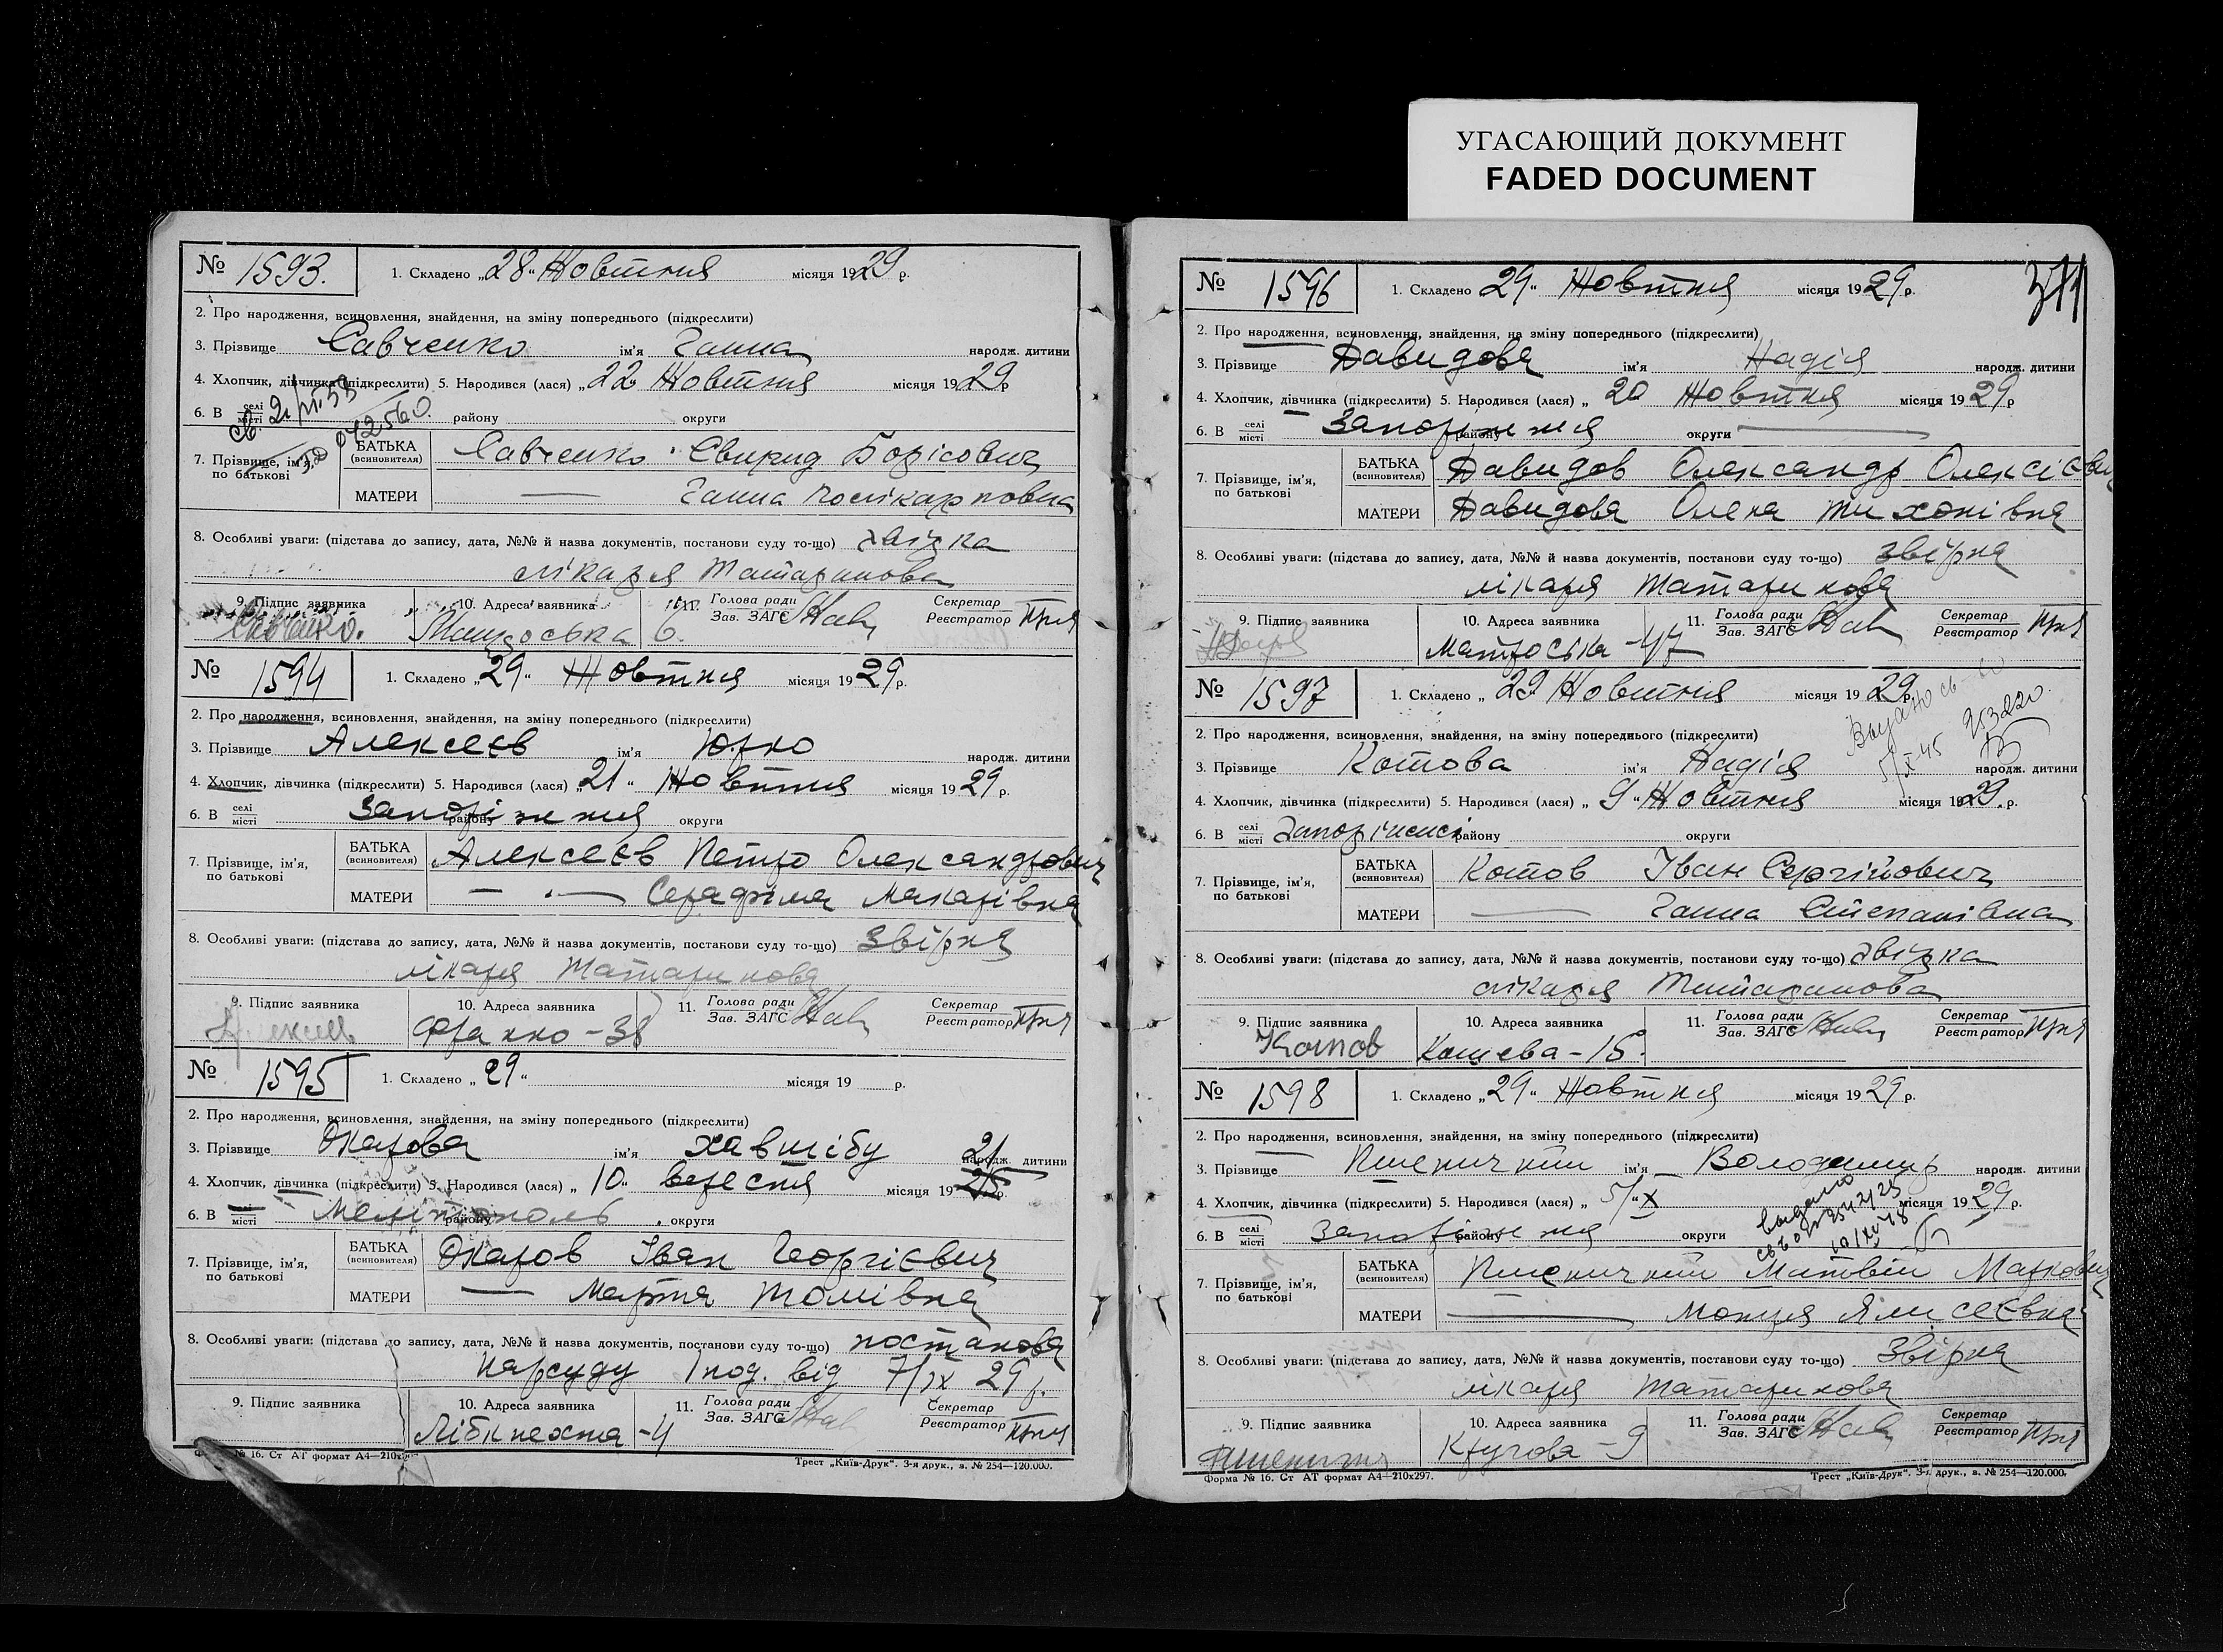 УГАСАЮЩИЙ ДОКУМЕНТ
FADED DOCUMENT
№ 1593. 1. Складено „28“ Жовтня місяця 1929 р.
2. Про народження, всиновлення, знайдення, на зміну попереднього (підкреслити)
3. Прізвище Савченко ім'я Ганна народж. дитини
4. Хлопчик, дівчинка (підкреслити) 5. Народився (лася) „22 Жовтня місяця 1929 р
6. В селі місті району округи
042560.
7. Прізвище, ім'я, по батькові
БАТЬКА (всиновителя) Савченко Свирид Борісович
МАТЕРИ — Ганна Полікарповна
8. Особливі уваги: (підстава до запису, дата, №№ й назва документів, постанови суду то-що) звірка
лікаря Татаринова
9. Підпис заявника 10. Адреса заявника 11. Голова ради Зав. ЗАГС Секретар Реєстратор
Савченко. 6.
№ 1594 1. Складено „29“ Жовтня місяця 1929 р.
2. Про народження, всиновлення, знайдення, на зміну попереднього (підкреслити)
3. Прізвище Алексеєв ім'я Юрко народж. дитини
4. Хлопчик, дівчинка (підкреслити) 5. Народився (лася) „21“ Жовтня місяця 1929 р.
6. В селі місті Запоріжжя району округи
7. Прізвище, ім'я, по батькові
БАТЬКА (всиновителя) Алексеєв Петро Олександрович
МАТЕРИ — — Серафіма Макарівна
8. Особливі уваги: (підстава до запису, дата, №№ й назва документів, постанови суду то-що) Звірка
лікаря Татаринова
9. Підпис заявника 10. Адреса заявника 11. Голова ради Зав. ЗАГС Секретар Реєстратор
Франко-38
№ 1595 1. Складено „29“ місяця 19 р.
2. Про народження, всиновлення, знайдення, на зміну попереднього (підкреслити)
3. Прізвище Окарова ім'я народж. дитини
21
4. Хлопчик, дівчинка (підкреслити) 5. Народився (лася) „10“ вересня місяця 1925 р.
6. В селі місті Мелітополь району округи
7. Прізвище, ім'я, по батькові
БАТЬКА (всиновителя) Окаров Іван Георгієвич
МАТЕРИ — Марта Томівна
8. Особливі уваги: (підстава до запису, дата, №№ й назва документів, постанови суду то-що) постанова
нарсуду від 7/IX 29 р.
9. Підпис заявника 10. Адреса заявника 11. Голова ради Зав. ЗАГС Секретар Реєстратор
Лібкнехта-4
Форма № 16. Ст АТ формат А4—210х297
Трест „Київ-Друк“. 3-я друк., в. № 254—120.000.
№ 1596 1. Складено 29“ Жовтня місяця 1929 р.
2. Про народження, всиновлення, знайдення, на зміну попереднього (підкреслити)
3. Прізвище Давидова ім'я Надія народж. дитини
4. Хлопчик, дівчинка (підкреслити) 5. Народився (лася) „20 Жовтня місяця 1929 р
6. В селі місті Запоріжжя району округи —
7. Прізвище, ім'я, по батькові
БАТЬКА (всиновителя) Давидов Олександр Олексієвич
МАТЕРИ Давидова Олена Тихонівна
8. Особливі уваги: (підстава до запису, дата, №№ й назва документів, постанови суду то-що) звірка
лікаря Татаринова
9. Підпис заявника 10. Адреса заявника 11. Голова ради Зав. ЗАГС Секретар Реєстратор
Матроська-47
№ 1597 1. Складено „29 Жовтня місяця 1929 р.
253220.
5/XI-45
2. Про народження, всиновлення, знайдення, на зміну попереднього (підкреслити)
3. Прізвище Котова ім'я Надія народж. дитини
4. Хлопчик, дівчинка (підкреслити) 5. Народився (лася) „9“ Жовтня місяця 1929. р.
6. В селі місті району округи
7. Прізвище, ім'я, по батькові
БАТЬКА (всиновителя) Котов Іван Сергійович
МАТЕРИ — Ганна Степанівна
8. Особливі уваги: (підстава до запису, дата, №№ й назва документів, постанови суду то-що) звірка
лікаря Татаринова
9. Підпис заявника 10. Адреса заявника 11. Голова ради Зав. ЗАГС Секретар Реєстратор
Котов Кошева-15.
№ 1598 1. Складено „29“ Жовтня місяця 1929 р.
2. Про народження, всиновлення, знайдення, на зміну попереднього (підкреслити)
3. Прізвище Пшеничний ім'я Володимир народж. дитини
4. Хлопчик, дівчинка (підкреслити) 5. Народився (лася) „5/“X місяця 1929 р.
6. В селі місті Запоріжжя району округи
видано
7. Прізвище, ім'я, по батькові
БАТЬКА (всиновителя) Пшеничний Матвій Маркович
МАТЕРИ — Елисеєвна
8. Особливі уваги: (підстава до запису, дата, №№ й назва документів, постанови суду то-що) Звірка
лікаря Татаринова
9. Підпис заявника 10. Адреса заявника 11. Голова ради Зав. ЗАГС Секретар Реєстратор
Кругова-9
Форма № 16. Ст АТ формат А4—210х297.
Трест „Київ-Друк“. 3-я друк., в. № 254—120.000.